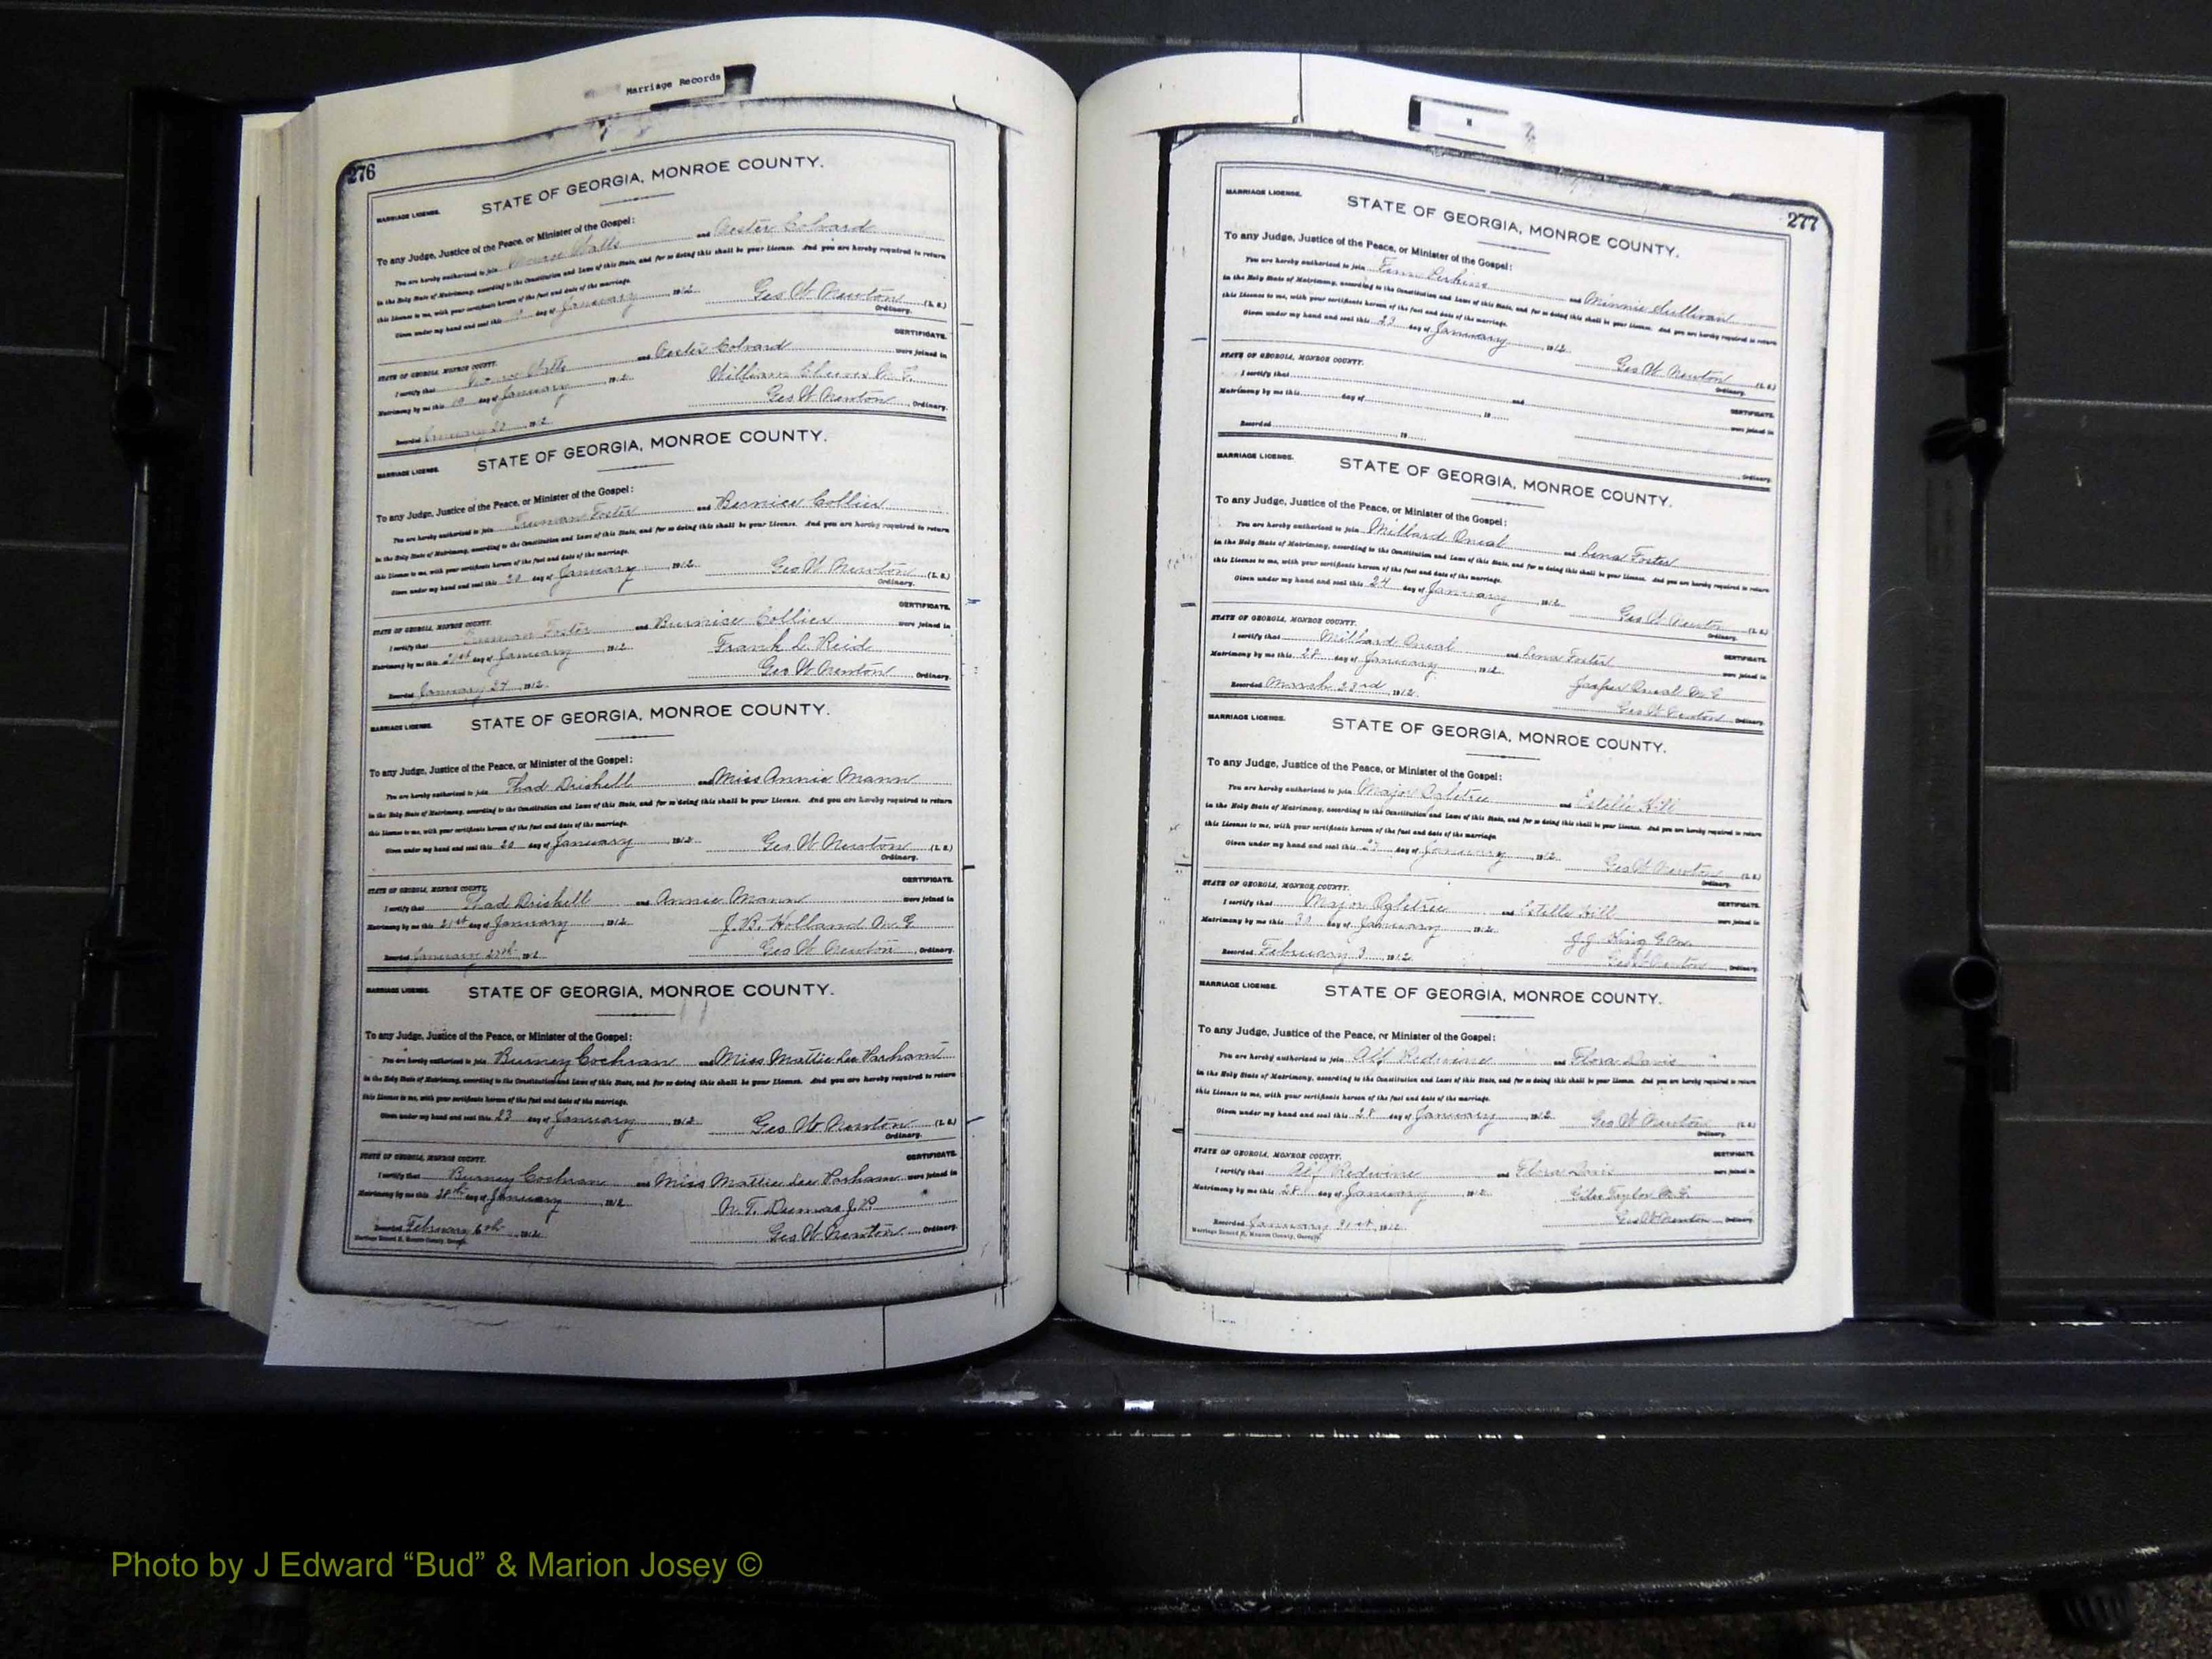 Marriage Records
276
MARRIAGE LICENSE.
STATE OF GEORGIA, MONROE COUNTY.
To any Judge, Justice of the Peace, or Minister of the Gospel:
You are hereby authorized to join Watts and Colvard
in the Holy State of Matrimony, according to the Constitution and Laws of this State, and for so doing this shall be your License. And you are hereby required to return
this License to me, with your certificate hereon of the fact and date of the marriage.
Given under my hand and seal this day of January 1912 Geo W Newton (L. S.)
Ordinary.
CERTIFICATE.
STATE OF GEORGIA, MONROE COUNTY.
I certify that Watts and Colvard were joined in
Matrimony by me this day of January 1912. William M. G.
Geo W Newton Ordinary.
Recorded January 1912
MARRIAGE LICENSE.
STATE OF GEORGIA, MONROE COUNTY.
To any Judge, Justice of the Peace, or Minister of the Gospel:
You are hereby authorized to join Truman Foster and Bernice Collier
in the Holy State of Matrimony, according to the Constitution and Laws of this State, and for so doing this shall be your License. And you are hereby required to return
this License to me, with your certificate hereon of the fact and date of the marriage.
Given under my hand and seal this 20 day of January 1912 Geo W Newton (L. S.)
Ordinary.
CERTIFICATE.
STATE OF GEORGIA, MONROE COUNTY.
I certify that Truman Foster and Burnice Collier were joined in
Matrimony by me this 21st day of January 1912 Frank L. Reid
Geo W Newton Ordinary.
Recorded January 1912
MARRIAGE LICENSE.
STATE OF GEORGIA, MONROE COUNTY.
To any Judge, Justice of the Peace, or Minister of the Gospel:
You are hereby authorized to join Thad Driskell and Miss Annie Mann
in the Holy State of Matrimony, according to the Constitution and Laws of this State, and for so doing this shall be your License. And you are hereby required to return
this License to me, with your certificate hereon of the fact and date of the marriage.
Given under my hand and seal this 20 day of January 1912 Geo W Newton (L. S.)
Ordinary.
CERTIFICATE.
STATE OF GEORGIA, MONROE COUNTY.
I certify that Thad Driskell and Annie Mann were joined in
Matrimony by me this 21st day of January 1912 J. B. Holland M. G.
Geo W Newton Ordinary.
Recorded January 191
MARRIAGE LICENSE.
STATE OF GEORGIA, MONROE COUNTY.
To any Judge, Justice of the Peace, or Minister of the Gospel:
You are hereby authorized to join Burney Cochran and Miss Mattie Lee Parham
in the Holy State of Matrimony, according to the Constitution and Laws of this State, and for so doing this shall be your License. And you are hereby required to return
this License to me, with your certificate hereon of the fact and date of the marriage.
Given under my hand and seal this 23 day of January 1912 Geo W Newton (L. S.)
Ordinary.
CERTIFICATE.
STATE OF GEORGIA, MONROE COUNTY.
I certify that Burney Cochran and Miss Mattie Lee Parham were joined in
Matrimony by me this 28th day of January 1912 Dumas J. P.
Geo W Newton Ordinary.
Recorded February 6th 1912
Marriage Record H, Monroe County, Georgia.
277
MARRIAGE LICENSE.
STATE OF GEORGIA, MONROE COUNTY.
To any Judge, Justice of the Peace, or Minister of the Gospel:
You are hereby authorized to join Perkins and Minnie Sullivan
in the Holy State of Matrimony, according to the Constitution and Laws of this State, and for so doing this shall be your License. And you are hereby required to return
this License to me, with your certificate hereon of the fact and date of the marriage.
Given under my hand and seal this 23 day of January 1912 Geo W Newton (L. S.)
Ordinary.
CERTIFICATE.
STATE OF GEORGIA, MONROE COUNTY.
I certify that and were joined in
Matrimony by me this day of 19
Ordinary.
Recorded 19
MARRIAGE LICENSE.
STATE OF GEORGIA, MONROE COUNTY.
To any Judge, Justice of the Peace, or Minister of the Gospel:
You are hereby authorized to join Millard Oneal and Lena Foster
in the Holy State of Matrimony, according to the Constitution and Laws of this State, and for so doing this shall be your License. And you are hereby required to return
this License to me, with your certificate hereon of the fact and date of the marriage.
Given under my hand and seal this 24 day of January 1912 Geo W Newton (L. S.)
Ordinary.
CERTIFICATE.
STATE OF GEORGIA, MONROE COUNTY.
I certify that Millard Oneal and Lena Foster were joined in
Matrimony by me this 28 day of January 1912 Jasper Oneal M G
Geo W Newton Ordinary.
Recorded March 23rd 1912
MARRIAGE LICENSE.
STATE OF GEORGIA, MONROE COUNTY.
To any Judge, Justice of the Peace, or Minister of the Gospel:
You are hereby authorized to join Major Ogletree and Estelle Hill
in the Holy State of Matrimony, according to the Constitution and Laws of this State, and for so doing this shall be your License. And you are hereby required to return
this License to me, with your certificate hereon of the fact and date of the marriage
Given under my hand and seal this day of January 1912 Geo W Newton (L. S.)
Ordinary.
CERTIFICATE.
STATE OF GEORGIA, MONROE COUNTY.
I certify that Major Ogletree and Estelle Hill were joined in
Matrimony by me this 30 day of January 1912 J. J. King
Geo W Newton Ordinary.
Recorded February 3 1912
MARRIAGE LICENSE.
STATE OF GEORGIA, MONROE COUNTY.
To any Judge, Justice of the Peace, or Minister of the Gospel:
You are hereby authorized to join Alf Redwine and Flora Davis
in the Holy State of Matrimony, according to the Constitution and Laws of this State, and for so doing this shall be your License. And you are hereby required to return
this License to me, with your certificate hereon of the fact and date of the marriage.
Given under my hand and seal this 28 day of January 1912 Geo W Newton (L. S.)
Ordinary.
CERTIFICATE.
STATE OF GEORGIA, MONROE COUNTY.
I certify that Alf Redwine and Flora Davis were joined in
Matrimony by me this 28 day of January 1912 Giles Taylor M. G.
Geo W Newton Ordinary.
Recorded January 31st 1912
Marriage Record H, Monroe County, Georgia.
Photo by J Edward “Bud” & Marion Josey ©